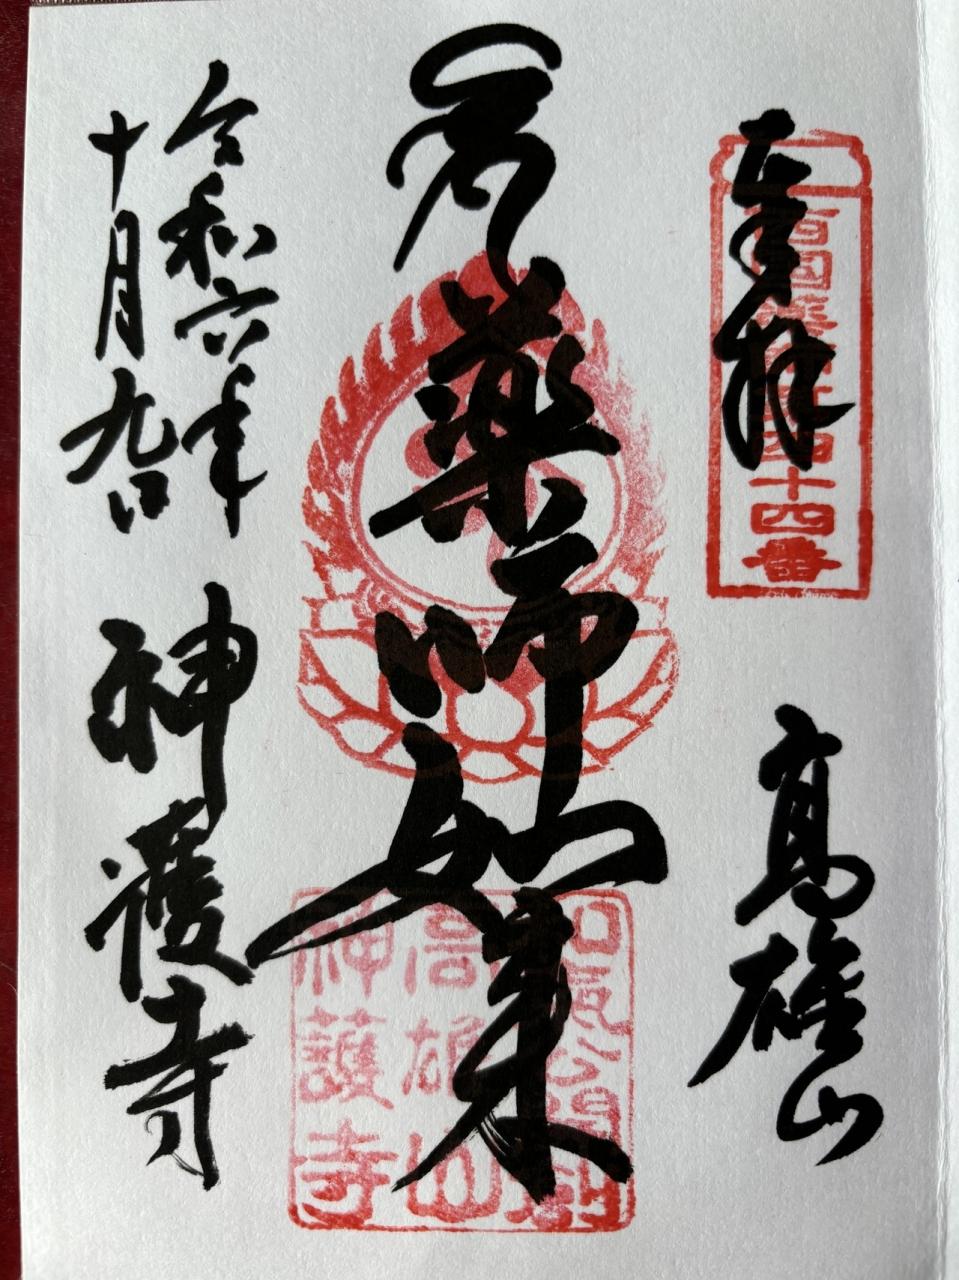 奉拝
西國薬師第四十四番
高雄山
薬師如来
和気公開創
高雄山
神護寺
令和六年
十月九日
神護寺